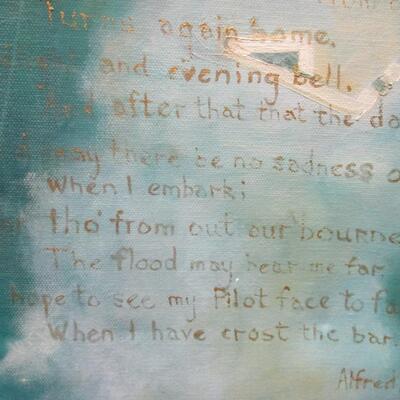 Turns again home.
and evening bell,
And after that that the da
may there be no sadness o
When I embark;
tho' from out our bourne
The flood may bear me far
hope to see my Pilot face to fa
When I have crost the bar.
Alfred